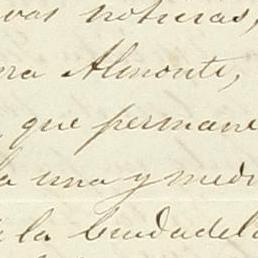 vas noticias,
ra Almonte,
que permane
a una y medi
la Ciudadela